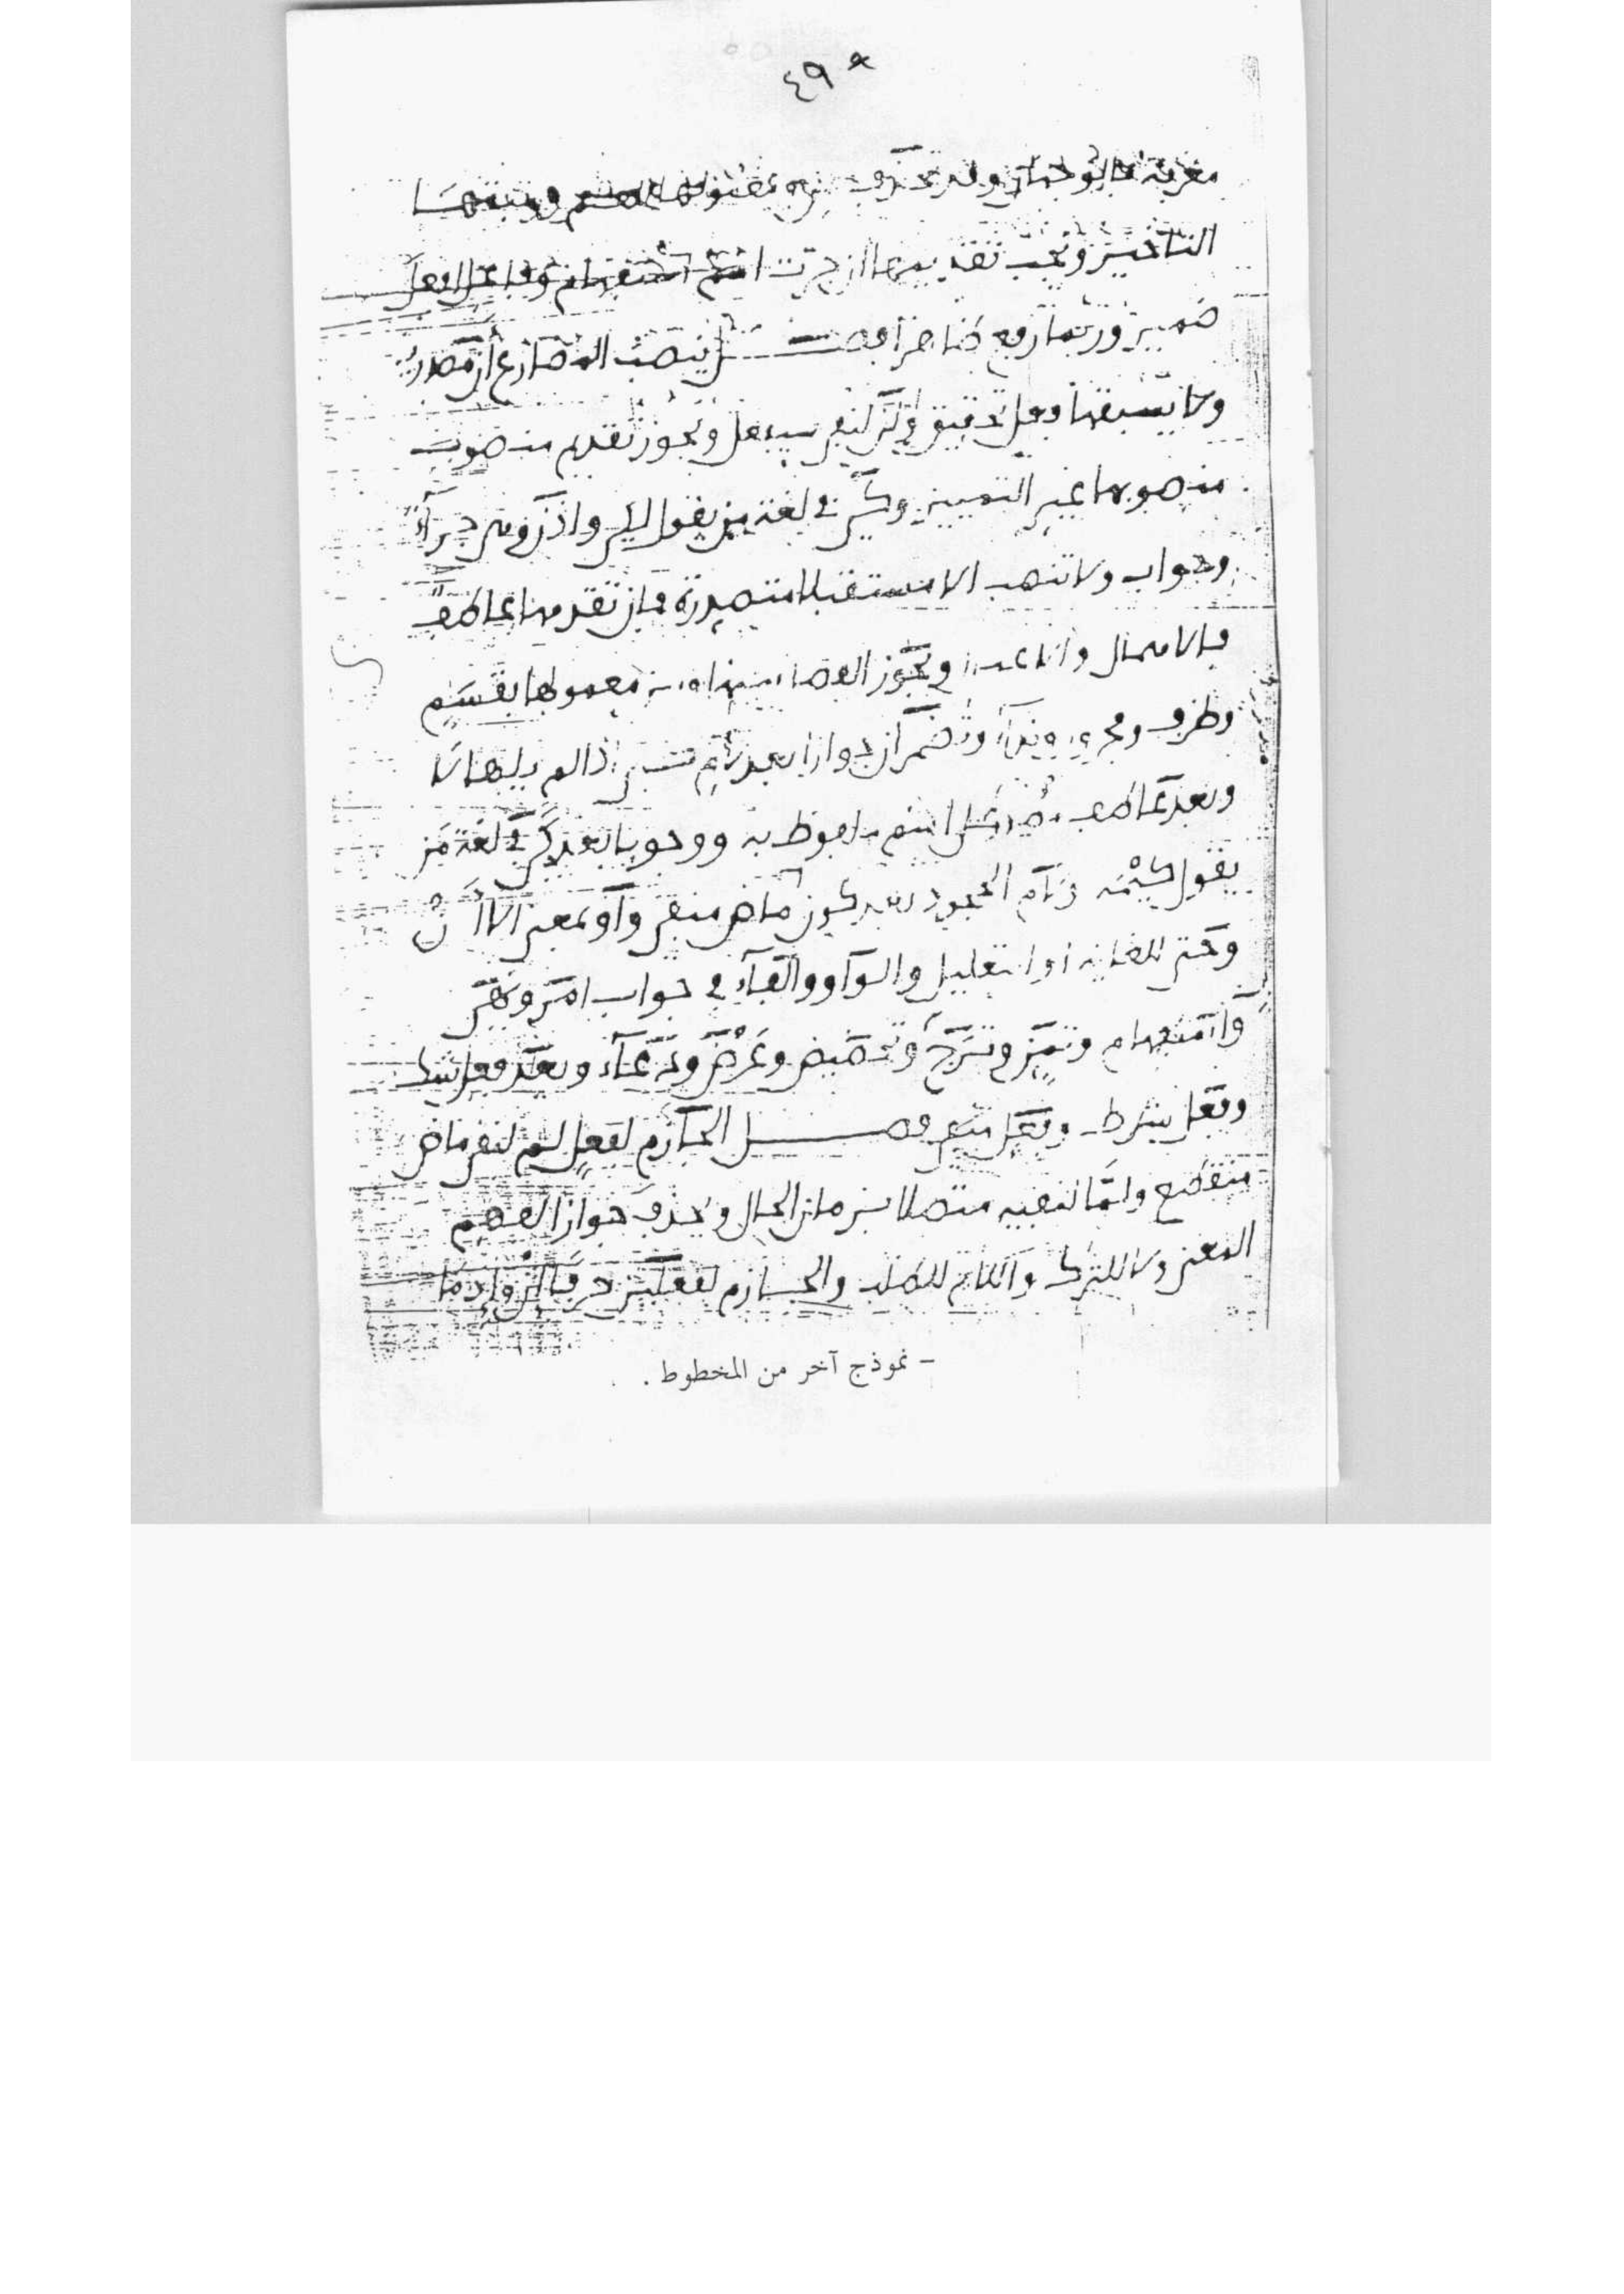 ٤٩
معرفة فالوجهان وقد تحذف من مفعولها للعلم ورتبتها
التأخير ويجب تقديمها ان جرت اسم استفهام وفاعل افعل
ضمير وربما رفع ظاهرا فصل ينصب المضارع أن مصدرية
ولا يسبقها فعل تحقيق ولن لنفي سيفعل ويجوز تقديم منصوب
منصوبها غير التمييز وكي في لغة من يقول لكي واذن وهي جزآء
وجواب ولا تنصب الا مستقبلا متصدرة فان تقدمها عاطف
فالاهمال والاعمال ويجوز الفصل بينها وبين معمولها بقسم
وظرف ومجرور وندآء وتضمر ان جوازا بعد لام اذا لم يليها لا
وبعد عاطف على اسم ملفوظ به ووجوبا بعد كي في لغة من
يقول كيمه ولام الجحود بعد كون ماض منفي وأو بمعنى الا أن
وحتى للغاية او التعليل والواو والفآء في جواب امر ونهي
واستفهام وتمن وترج وتحضيض وعرض ودعآء وبعد فعل شك
وفعل شرط وفصل الجازم لفعل لم لنفي ماض
منقطع ولمّا لنفيه متصلا بزمان الحال ويحذف جوازا لفهم
المعنى ولا للترك واللام للطلب والجازم لفعلين حرفا إن وإذما
– نموذج آخر من المخطوط .